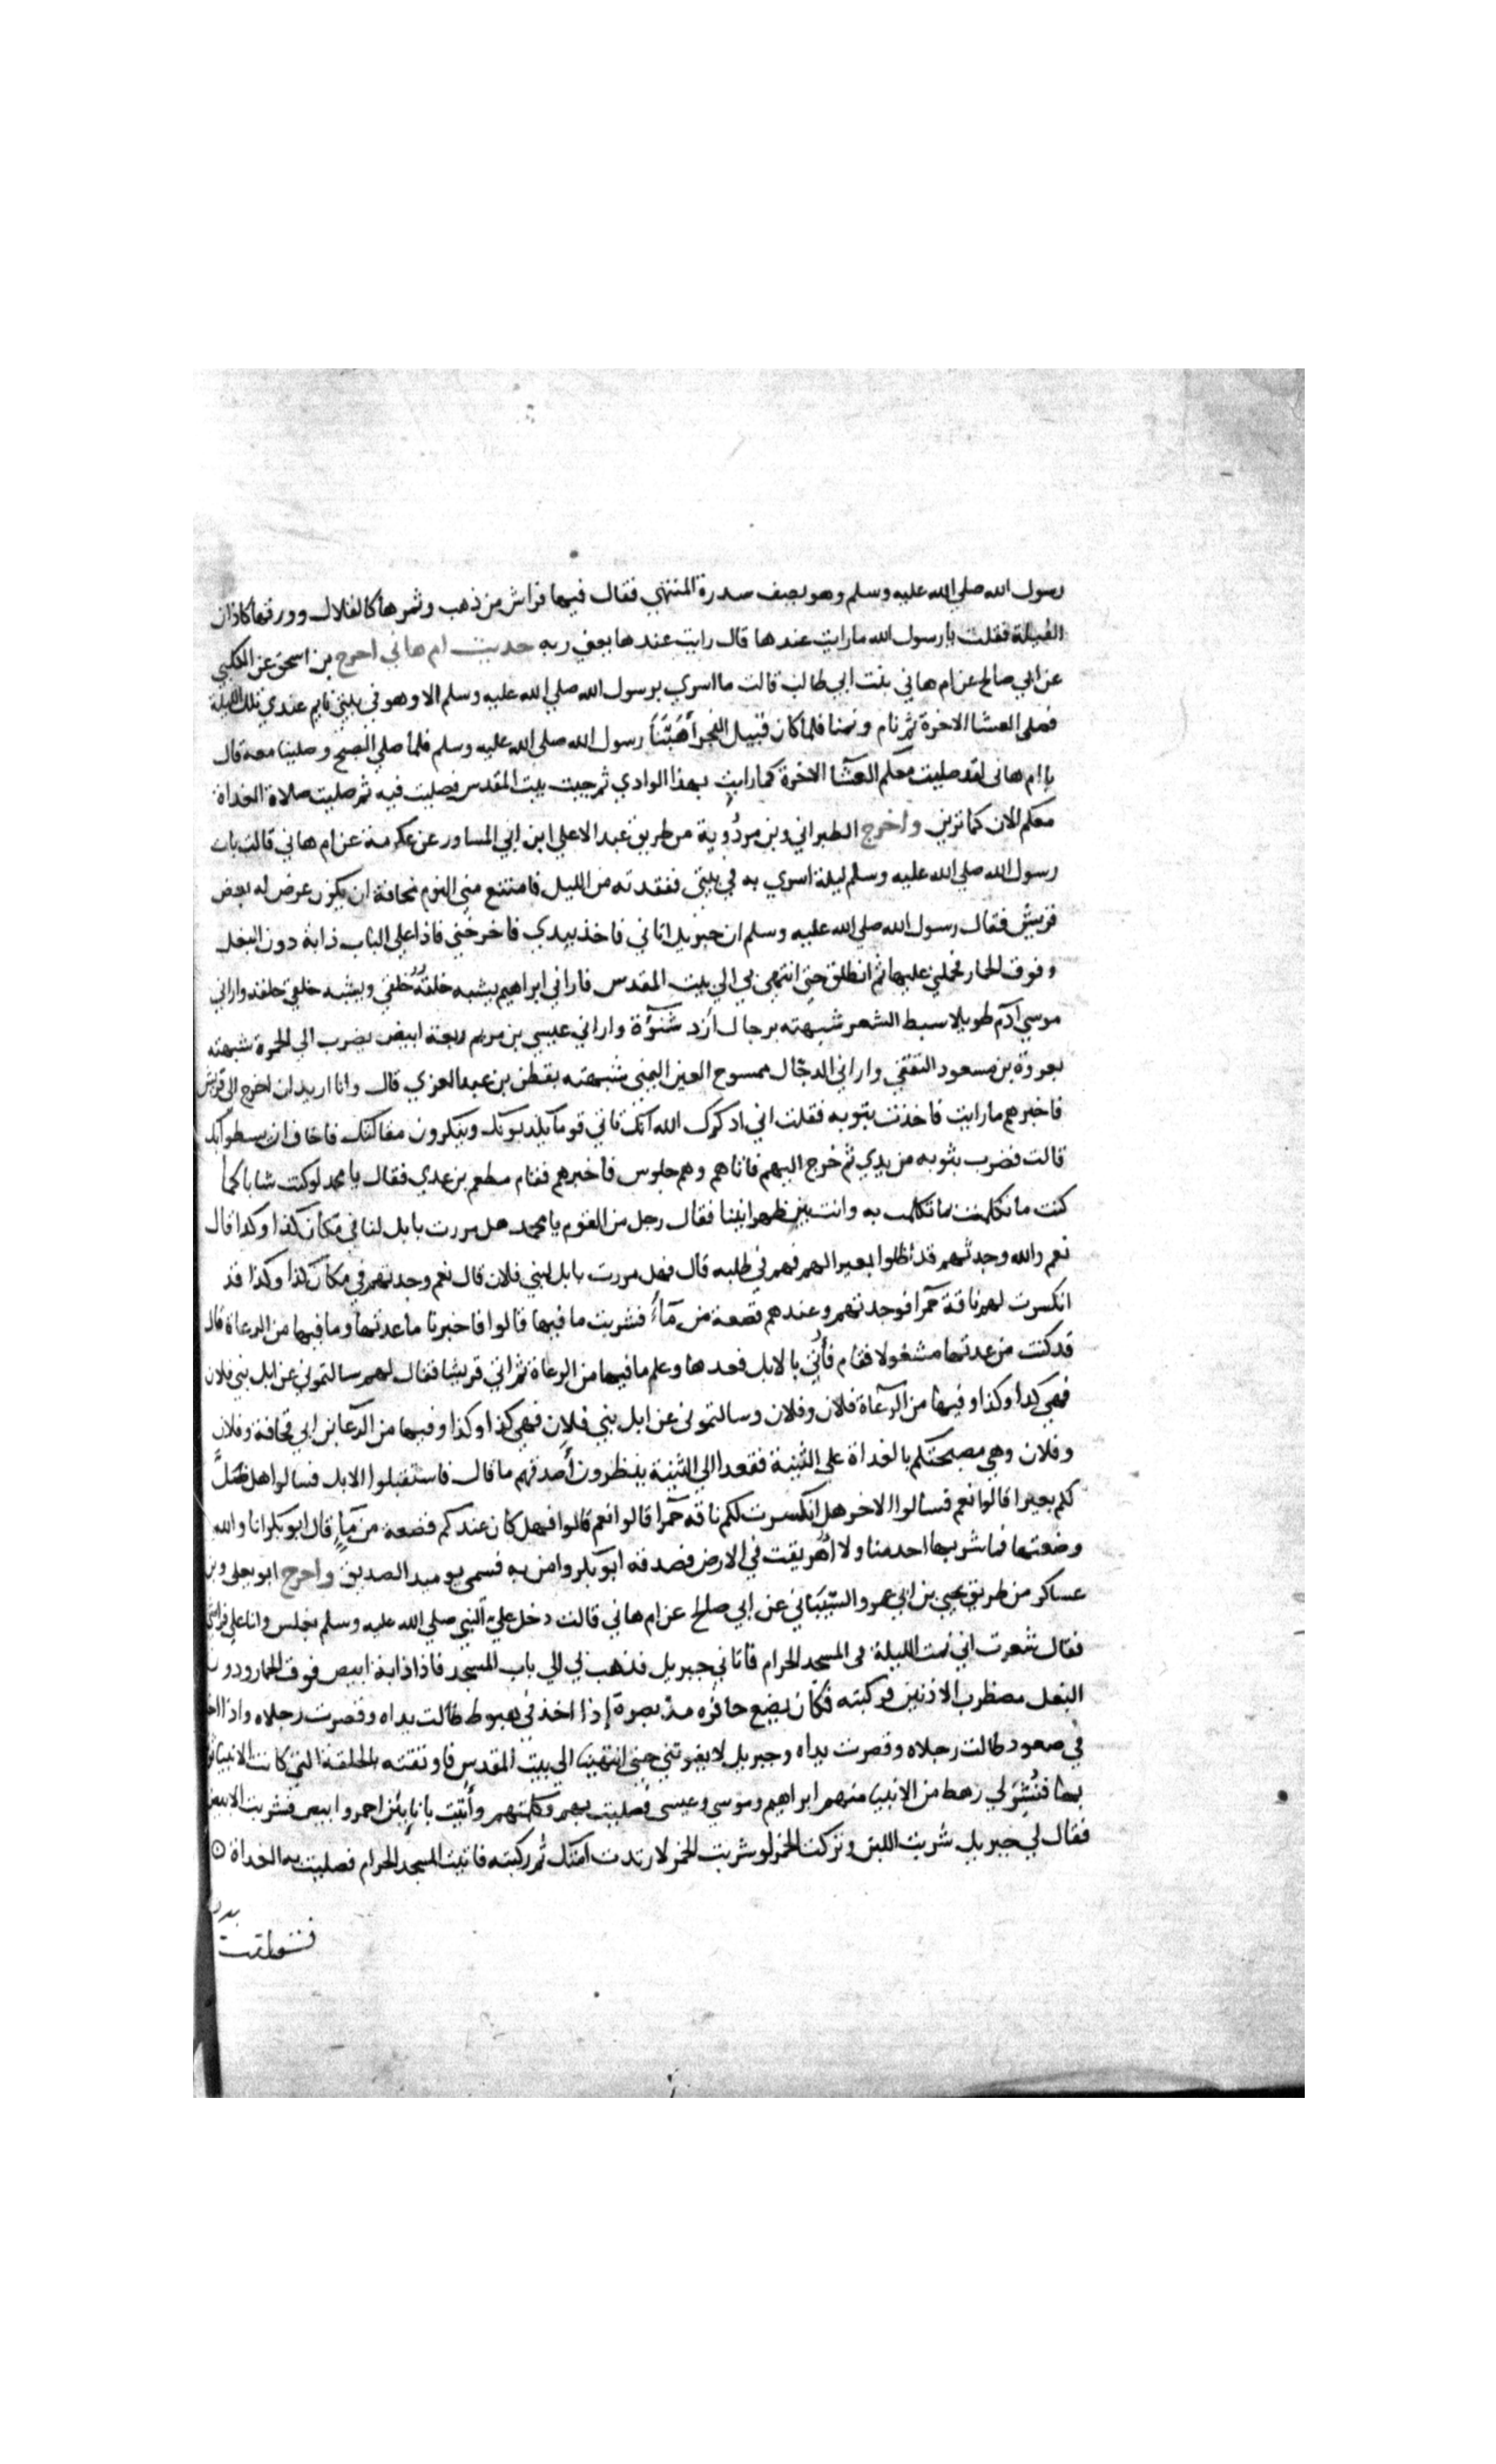 رسول الله صلي الله عليه وسلم وهو يصف سدرة المنتهي فقال فيها فراش من ذهب وثمرها كالقلال وورقها كاذان
الفيلة فقلت يا رسول الله ما رايت عندها قال رايت عندها يعني ربه حديث ام هاني اخرج بن اسحق عن الكلبي
عن ابي صالح عن ام هاني بنت ابي طالب قالت ما اسري برسول الله صلي الله عليه وسلم الا وهو في بيتي نايم عندي تلك الليلة
فصلى العشا الاخرة ثم نام ونمنا فلما كان قبيل الفجر أهَبَّنَا رسول الله صلى الله عليه وسلم فلما صلي الصبح وصلينا معه قال
يا ام هانى لقد صليت معكم العشآ الاخرة كما رايت بهذا الوادي ثم جيت بيت المقدس فصليت فيه ثم صليت صلاة الغداة
معكم الان كما ترين واخرج الطبراني وبن مردُوية من طريق عبد الاعلي ابن ابي المساور عن عكرمة عن ام هاني قالت بات
رسول الله صلي الله عليه وسلم ليلة اسري به في بيتي ففقدته من الليل فامتنع مني النوم مخافة ان يكون عرض له بعض
قريش فقال رسول الله صلي الله عليه وسلم ان جبريل اتاني فاخذ بيدي فاخرجني فاذا علي الباب دابة دون البغل
وفوق الحمار فحملني عليها ثم انطلق حتى انتهى بي الي بيت المقدس فاراني ابراهيم يشبه خلقه خلقي ويشبه خلقي خلقه واراني
موسي آدم طويلا سبط الشعر شبهته برجال أزد شنؤة واراني عيسي بن مريم ربعة ابيض يضرب الي الحمرة شبهته
بعروة بن مسعود الثقفي واراني الدجّال ممسوح العين اليمني شبهته بقطن بن عبد العزي قال وانا اريد ان اخرج الى قريش
فاخبرهم ما رايت فاخذت بثوبه فقلت اني اذكرك الله انك تاتي قوما يكذبونك وينكرون مقالتك فاخاف ان يسطوا بك
قالت فضرب بثوبه من يدي ثم خرج اليهم فاتاهم وهم جلوس فاخبرهم فقام مطعم بن عدي فقال يا محمد لو كنت شابا كما
كنت ما تكلمت بما تكلمت به وانت بين ظهرانينا فقال رجل من القوم يا محمد هل مررت بابل لنا في مكان كذا وكذا قال
نعم والله وجدتهم قد اظلوا بعيرا لهم فهم في طلبه قال فهل مررت بابل لبني فلان قال نعم وجدتهم في مكان كذا وكذا قد
انكسرت لهم ناقة حمرا فوجدتهم وعندهم قصعة من مآء فشربت ما فيها قالوا فاخبرنا ما عدتها وما فيها من الرعاة قال
قد كنت من عدتها مشغولا فقام فأُتي بالابل فعدها وعلم ما فيها من الرعاة ثم اتي قريشا فقال لهم سالتموني عن ابل بني فلان
فهي كذا وكذا وفيها من الرعاة فلان وفلان وسالتموني عن ابل بني فلان فهي كذا وكذا وفيها من الرعا بن ابي قحافة وفلان
وفلان وهي مصبحتكم بالغداة على الثنية فقعدا الي الثنية ينظرون أصدقهم ما قال فاستقبلوا الابل فسالوا هل ضَلَّ
لكم بعير قالوا نعم فسالوا الاخر هل انكسرت لكم ناقه حمرا قالوا نعم قالوا فهل كان عندكم قصعة من مآء قال ابو بكر انا والله
وضعتها فما شربها احد منا ولا اهريقت في الارض فصدقه ابو بكر وامن به فسمي يوميد الصديق واخرج ابو يعلى وبن
عساكر من طريق يحيي بن ابي عمرو السَّيْبَاني عن ابي صالح عن ام هاني قالت دخل علي النبي صلي الله عليه وسلم بغلس وانا علي فراشي
فقال شعرت اني نمت الليلة في المسجد الحرام فاتاني جبريل فذهب بي الي باب المسجد فاذا دابة ابيض فوق الحمار ودون
البغل مضطرب الاذنين فركبته فكان يضع حافره مد بصره إذا اخذ في هبوط طالت يداه وقصرت رجلاه واذا اخذ
في صعود طالت رجلاه وقصرت يداه وجبريل لا يفوتني حتى انتهينا الي بيت المقدس فاوثقته بالحلقة التي كانت الانبيا توثق
بها فنُشِرَ لي رهط من الانبيا منهم ابراهيم وموسي وعيسى فصليت بهم وكلمتهم وأُتيت باناءين احمر وابيض فشربت الابيض
فقال لي جبريل شربت اللبن وتركت الخمر لو شربت الخمر لارتدت امتك ثم ركبته فاتيت المسجد الحرام فصليت به الغداة
فتعلقت